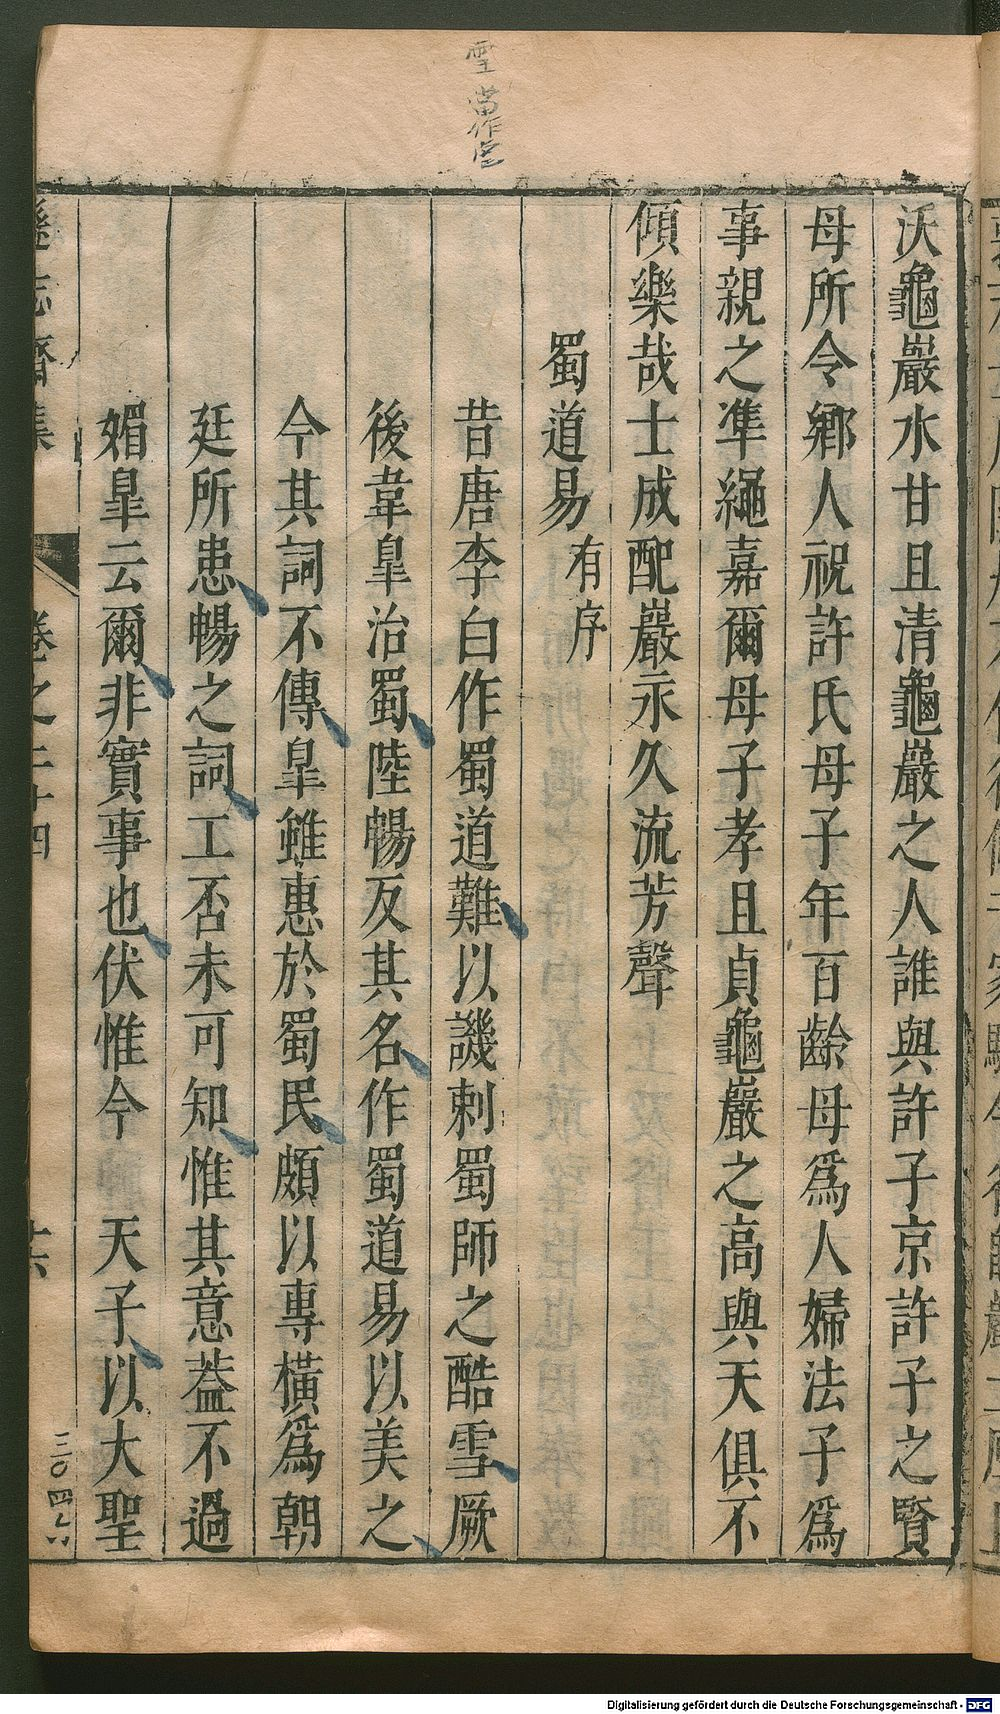 沃龜巖水甘且清龜巖之人誰與許子京許子之賢
母所令鄉人祝許氏母子年百齡母爲人婦法子爲
事親之準繩嘉爾母子孝且貞龜巖之高與天俱不
傾樂哉士成配巖示久流芳聲
蜀道易有序
昔唐李白作蜀道難以譏刺蜀師之酷雪厥
後韋臯治蜀陸暢反其名作蜀道易以美之
今其詞不傳臯雖惠於蜀民頗以專橫爲朝
延所患暢之詞工否未可知惟其意葢不過
媚臯云爾非實事也伏惟今 天子以大聖
遜志齋集 卷之二十四 十六
雪當作虐
三〇四七六
Digitalisierung gefördert durch die Deutsche Forschungsgemeinschaft - DFG